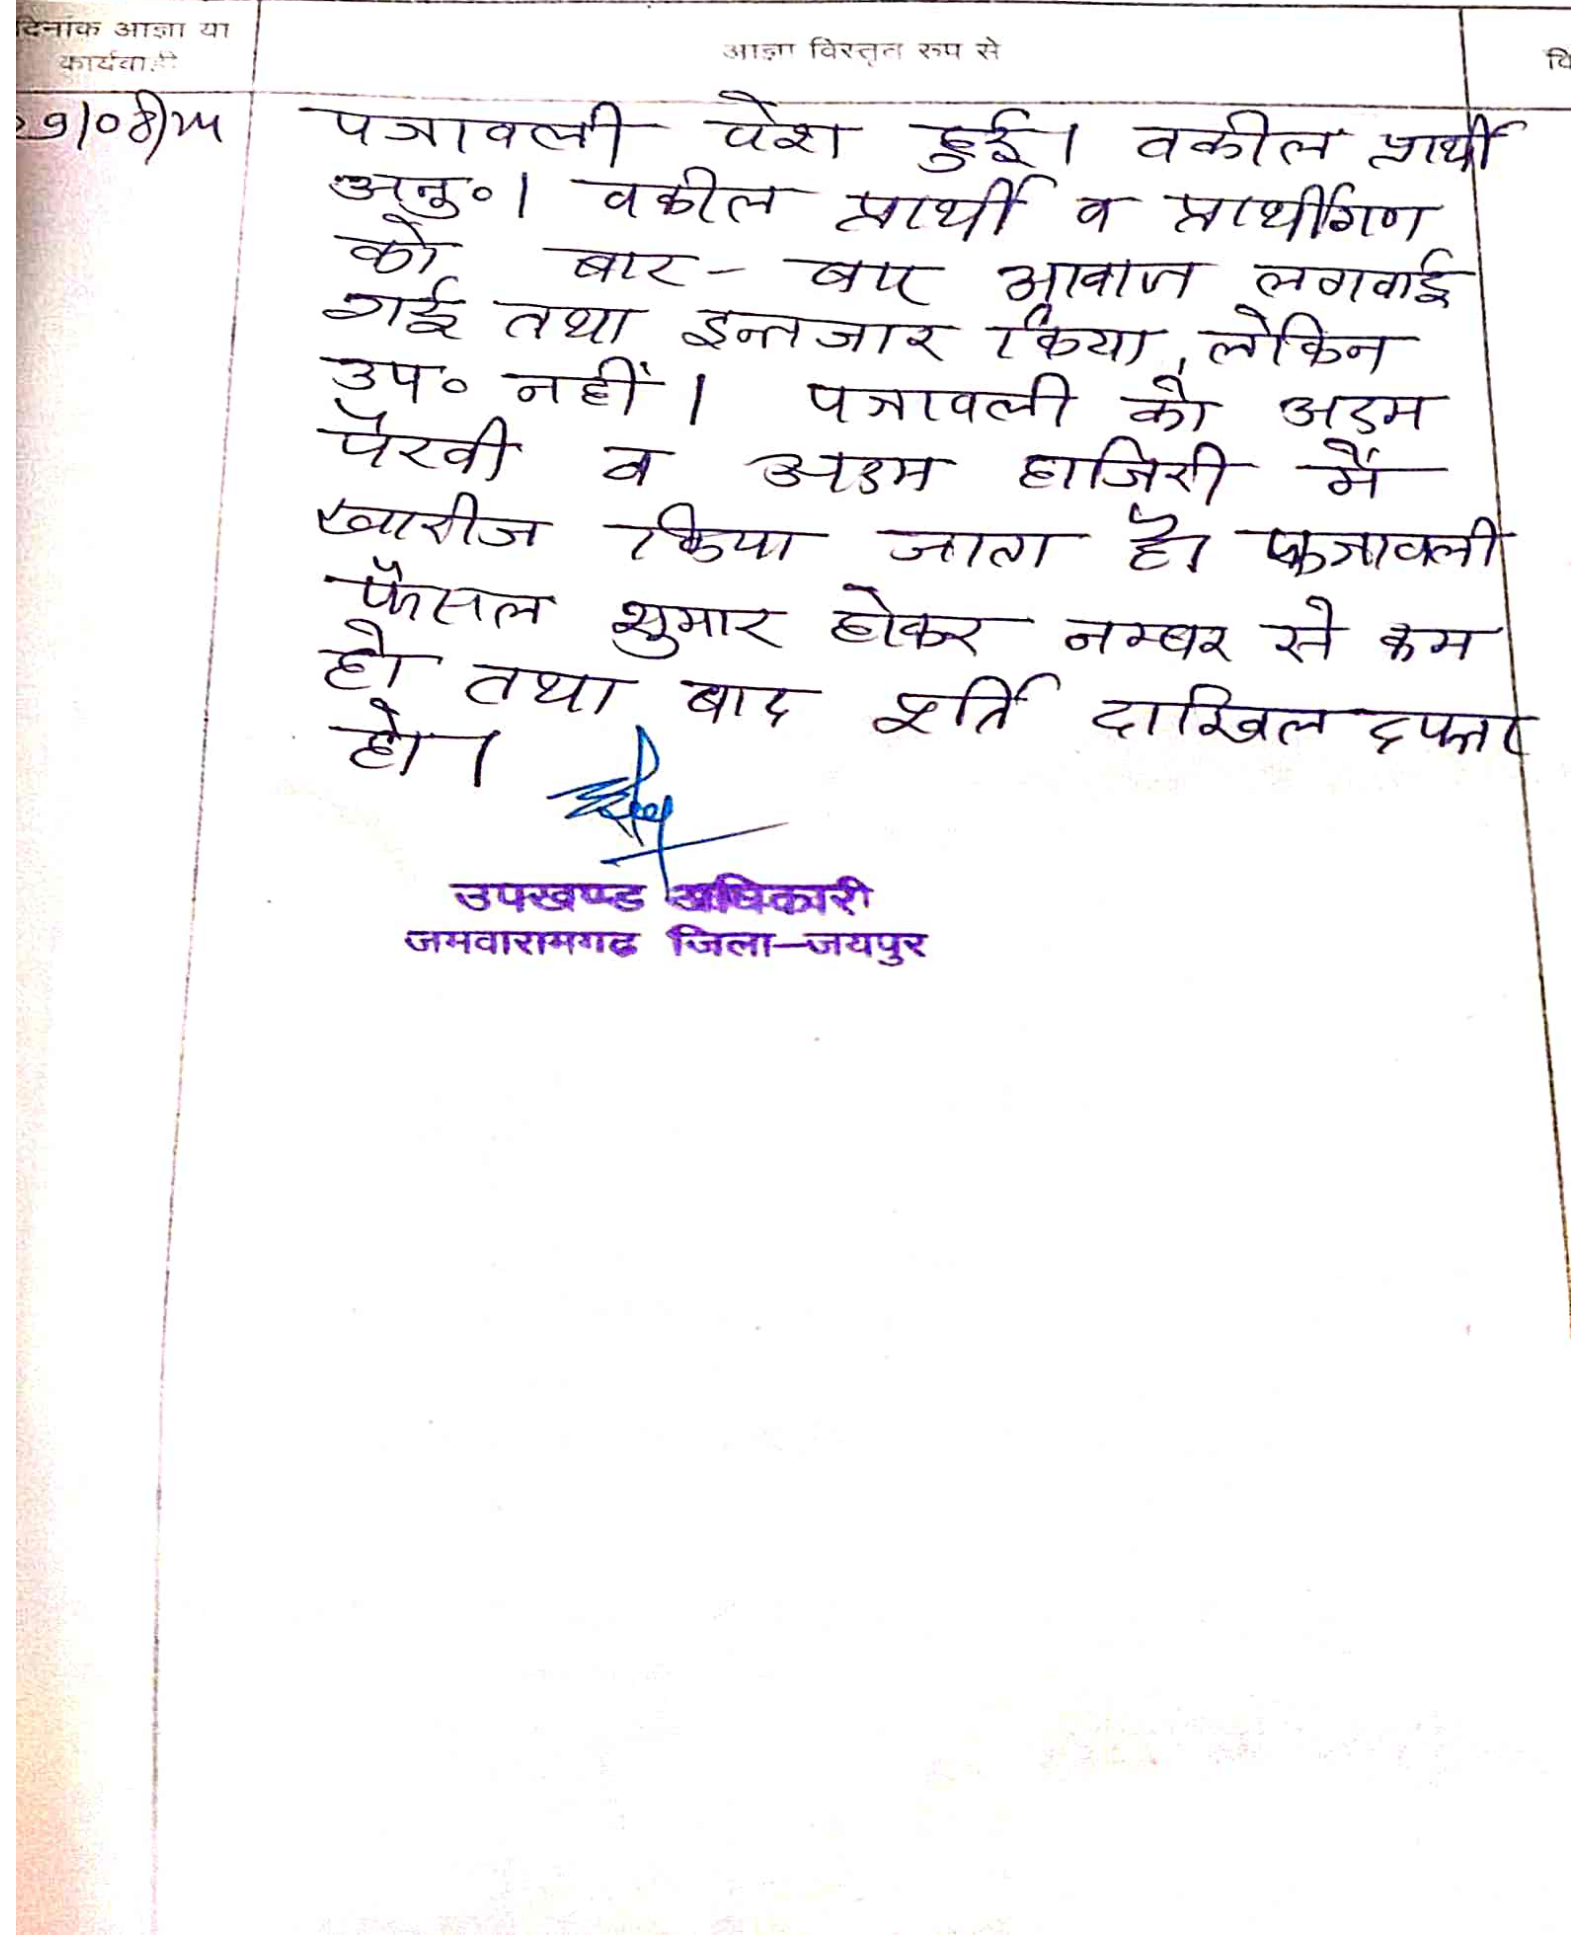 दिनांक आज्ञा या
कार्यवाही
आज्ञा विस्तृत रूप से
वि
29/08/24
पत्रावली पेश हुई। वकील प्रार्थी
अनु०। वकील प्रार्थी व प्रार्थीगण
को बार-बार आवाज लगवाई
गई तथा इन्तजार किया, लेकिन
उप० नहीं। पत्रावली को अदम
पैरवी व अदम हाजिरी में
खारीज किया जाता है। पत्रावली
फैसल शुमार होकर नम्बर से कम
हो तथा बाद पूर्ति दाखिल दफ्तर
हो।
उपखण्ड अधिकारी
जमवारामगढ जिला-जयपुर